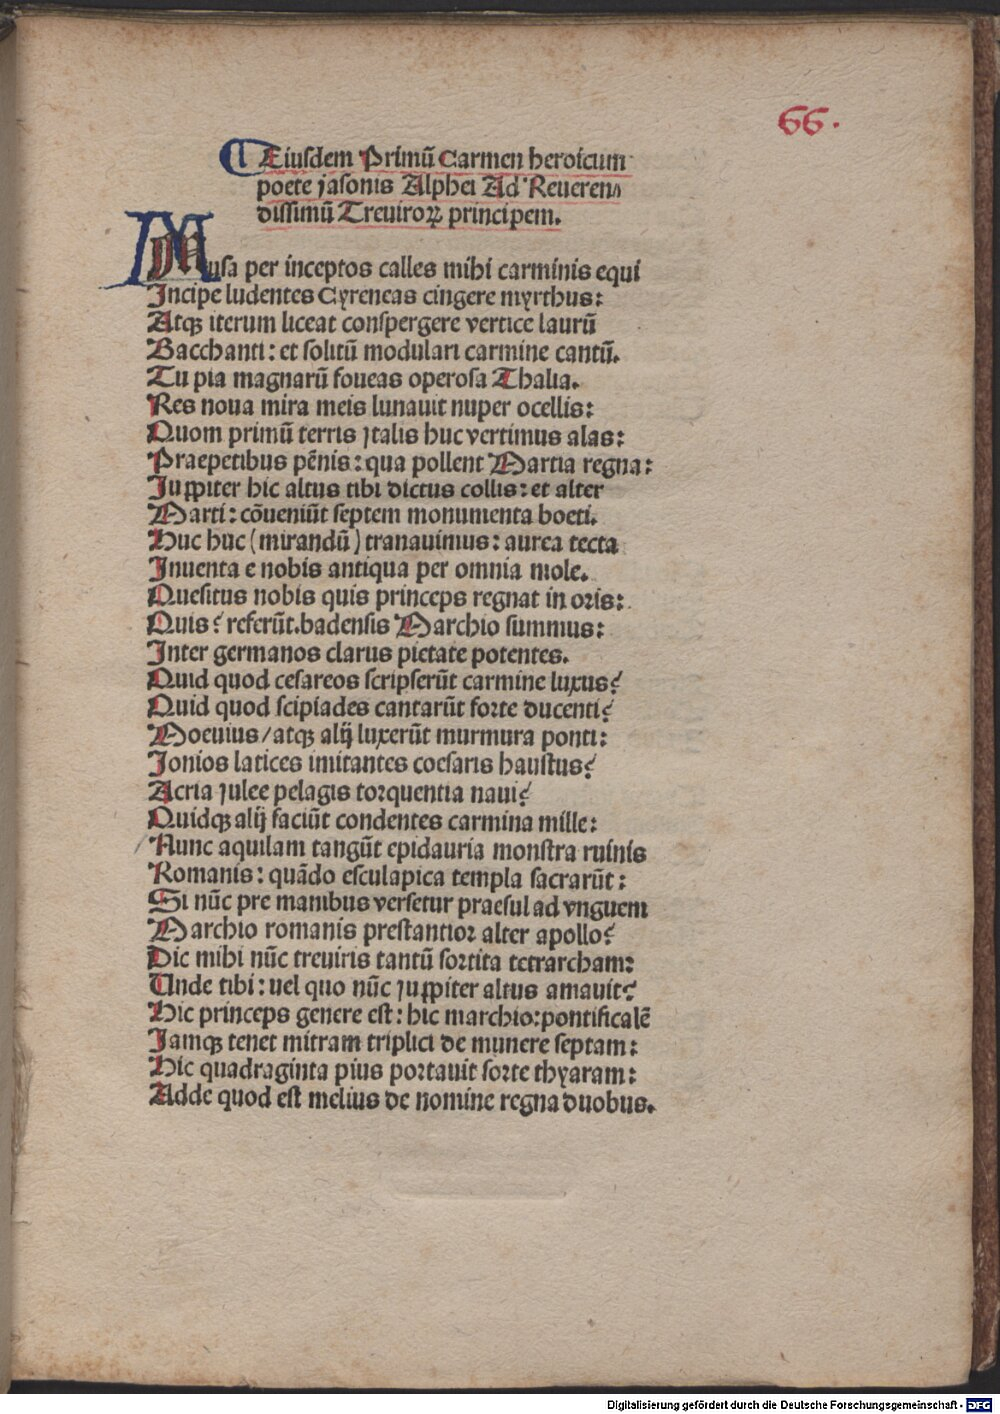 66.
Eiusdem Primū Carmen heroicum
poete jasonis Alphei Ad Reueren⸗
dissimū Treuiroꝝ principem.
Musa per inceptos calles mihi carminis equi
Incipe ludentes Cyreneas cingere myrthus:
Atqꝫ iterum liceat conspergere vertice laurū
Bacchanti: et solitū modulari carmine cantū.
Tu pia magnarū foueas operosa Thalia.
Res noua mira meis lunauit nuper ocellis:
Quom primū terris jtalis huc vertimus alas:
Praepetibus pēnis: qua pollent Martia regna:
Juppiter hic altus tibi dictus collis: et alter
Marti: cōueniūt septem monumenta boeti.
Huc huc (mirandū) tranauimus: aurea tecta
Inuenta e nobis antiqua per omnia mole.
Quesitus nobis quis princeps regnat in oris:
Quis? referūt. badensis Marchio summus:
Inter germanos clarus pietate potentes.
Quid quod cesareos scripserūt carmine luxus?
Quid quod scipiades cantarūt forte ducenti?
Moeuius/atqꝫ alij luxerūt murmura ponti:
Jonios latices imitantes coesaris haustus?
Acria julee pelagis torquentia naui?
Quidqꝫ alij faciūt condentes carmina mille:
Nunc aquilam tangūt epidauria monstra ruinis
Romanis: quādo esculapica templa sacrarūt:
Si nūc pre manibus versetur praesul ad vnguem
Marchio romanis prestantior alter apollo?
Dic mihi nūc treuiris tantū sortita tetrarcham:
Unde tibi: uel quo nūc juppiter altus amauit?
Hic princeps genere est: hic marchio: pontificalē
Jamqꝫ tenet mitram triplici de munere septam:
Hic quadraginta pius portauit sorte thyaram:
Adde quod est melius de nomine regna duobus.
Digitalisierung gefördert durch die Deutsche Forschungsgemeinschaft - DFG